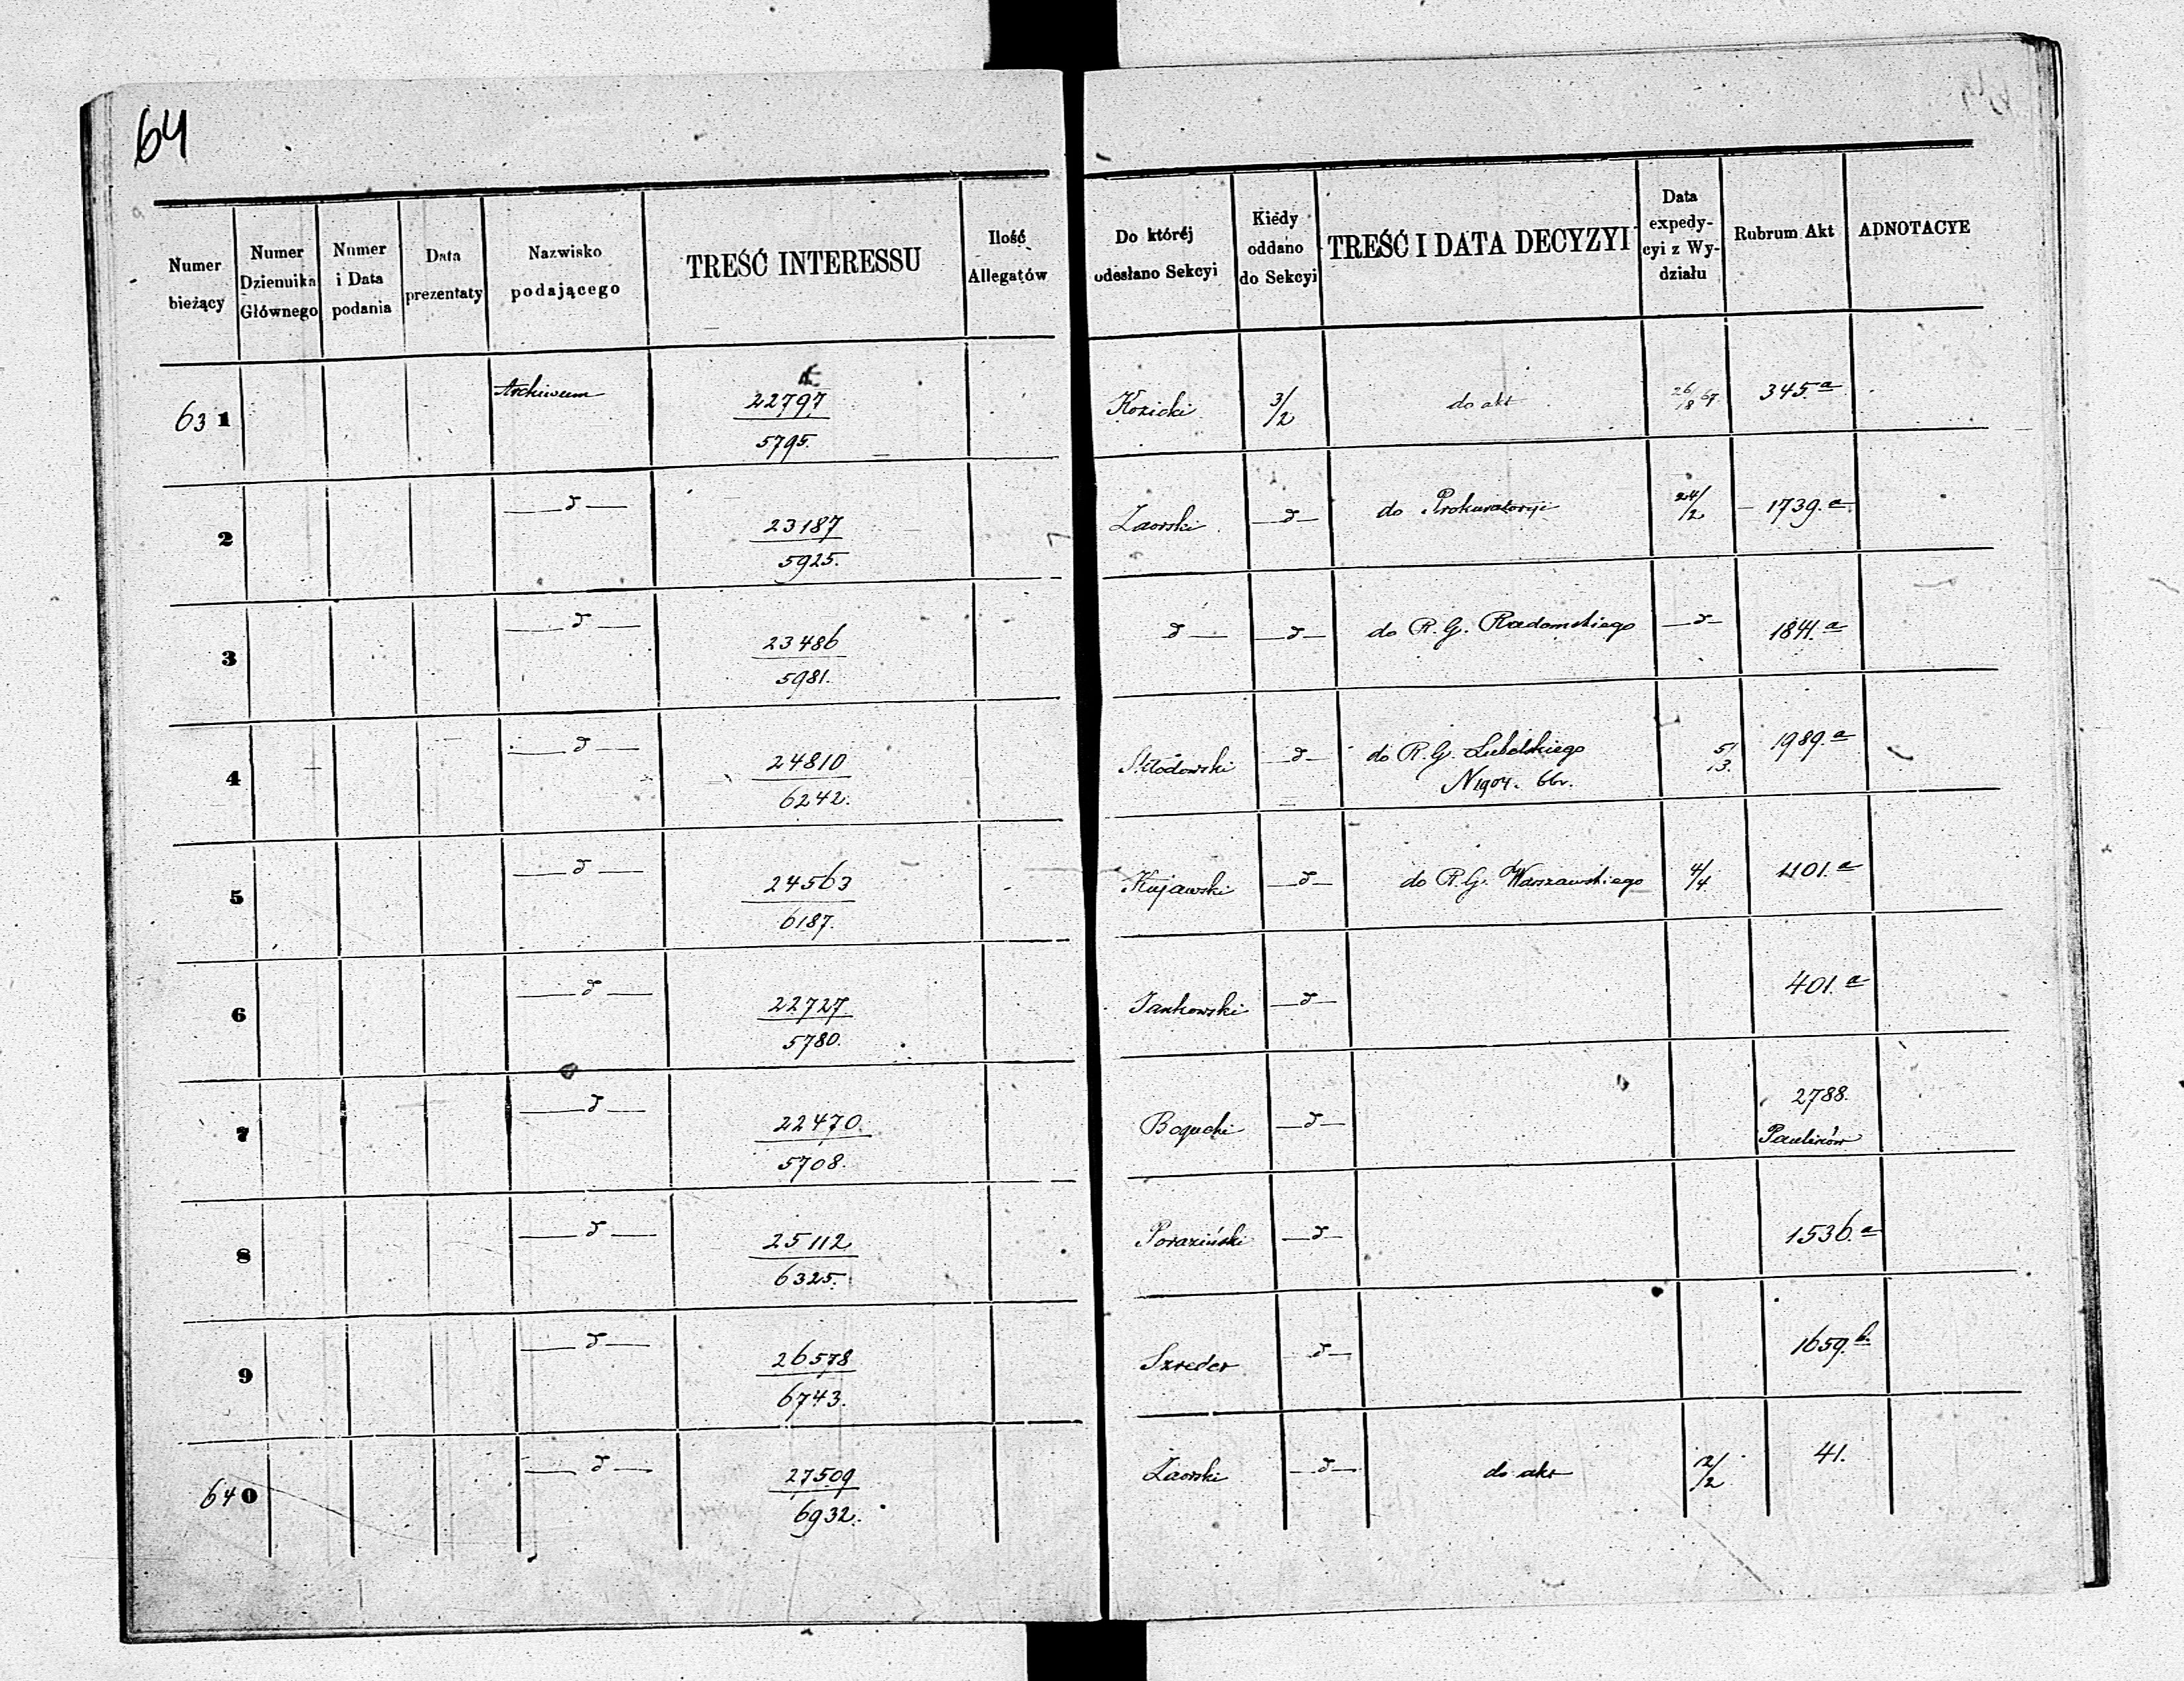 64
Numer bieżący | Numer Dziennika Głównego | Numer i Data podania | Data prezentaty | Nazwisko podającego | TREŚĆ INTERESSU | Ilość Allegatów | Do któréj odesłano Sekcyi | Kiedy oddano do Sekcyi | TREŚĆ I DATA DECYZYI | Data expedycyi z Wydziału | Rubrum Akt | ADNOTACYE
631 | Archiwum | 22797 / 5795. | Kozicki | 3/2 | do akt | 26/18 67 | 345.a
2 | —d— | 23187 / 5925. | Zaorski | —d— | do Prokuratoryi | 24/2 | 1739.a
3 | —d— | 23486 / 5981. | d— | —d— | do R. G. Radomskiego | —d— | 1841.a
4 | —d— | 24810 / 6242. | Skłodowski | —d— | do R. G. Lubelskiego N 1904. 66r. | 5/3. | 1989.a
5 | —d— | 24563 / 6187. | Kujawski | —d— | do R. G. Warszawskiego | 4/4 | 1101.a
6 | —d— | 22727. / 5780. | Jankowski | —d— | 401.a
7 | —d— | 22470. / 5708. | Bogucki | —d— | 2788. Paulinów
8 | —d— | 25112 / 6325. | Poraziński | —d— | 1536.a
9 | —d— | 26578 / 6743. | Szreder | —d— | 1659.b.
640 | —d— | 27509 / 6932. | Zaorski | —d— | do akt | 12/2 | 41.